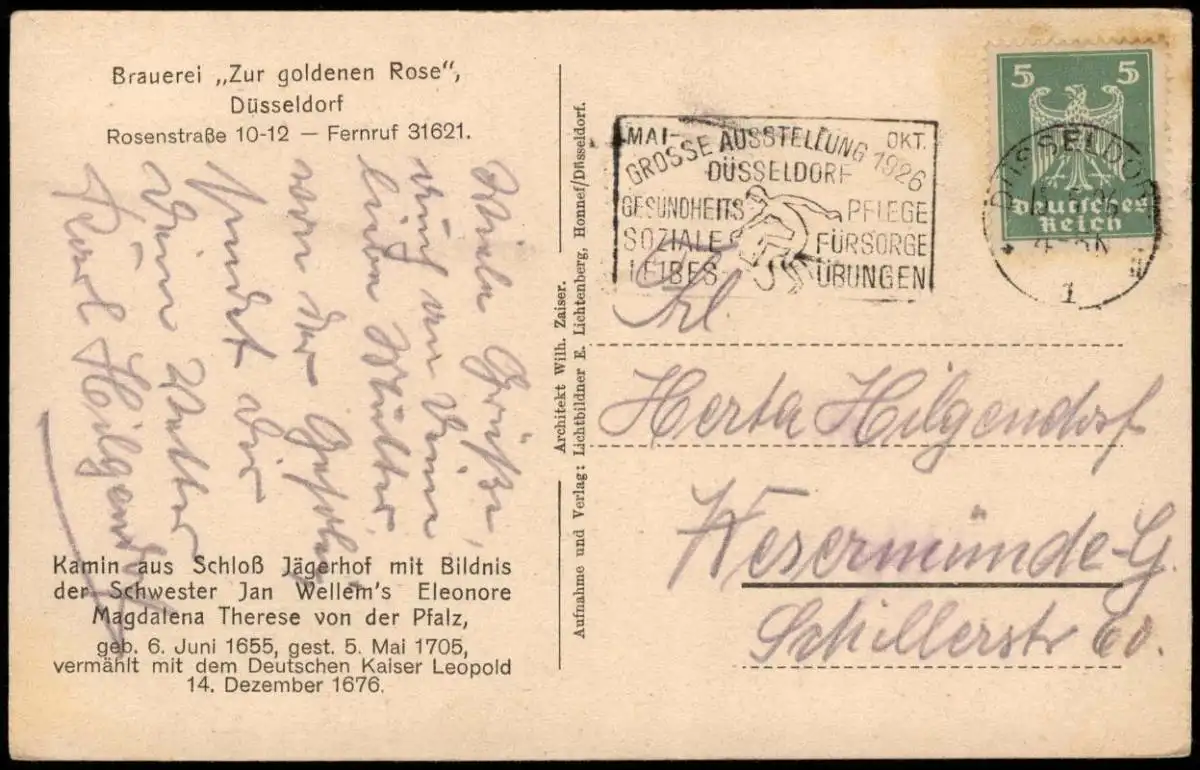 Brauerei „Zur goldenen Rose“,
Düsseldorf
Rosenstraße 10-12 — Fernruf 31621.
Viele Grüße,
auch an Deine
liebe Mutter
von der
sendet Dir
Dein Vetter
Karl Hilgendorf
Kamin aus Schloß Jägerhof mit Bildnis
der Schwester Jan Wellem's Eleonore
Magdalena Therese von der Pfalz,
geb. 6. Juni 1655, gest. 5. Mai 1705,
vermählt mit dem Deutschen Kaiser Leopold
14. Dezember 1676.
Architekt Wilh. Zaiser.
Aufnahme und Verlag: Lichtbildner E. Lichtenberg, Honnef/Düsseldorf.
MAI- OKT.
GROSSE AUSSTELLUNG 1926
DÜSSELDORF
GESUNDHEITS PFLEGE
SOZIALE FÜRSORGE
LEIBES ÜBUNGEN
5 5
Deutsches
Reich
DÜSSELDORF
1
Frl.
Herta Hilgendorf
Wesermünde-G.
Schillerstr 60.